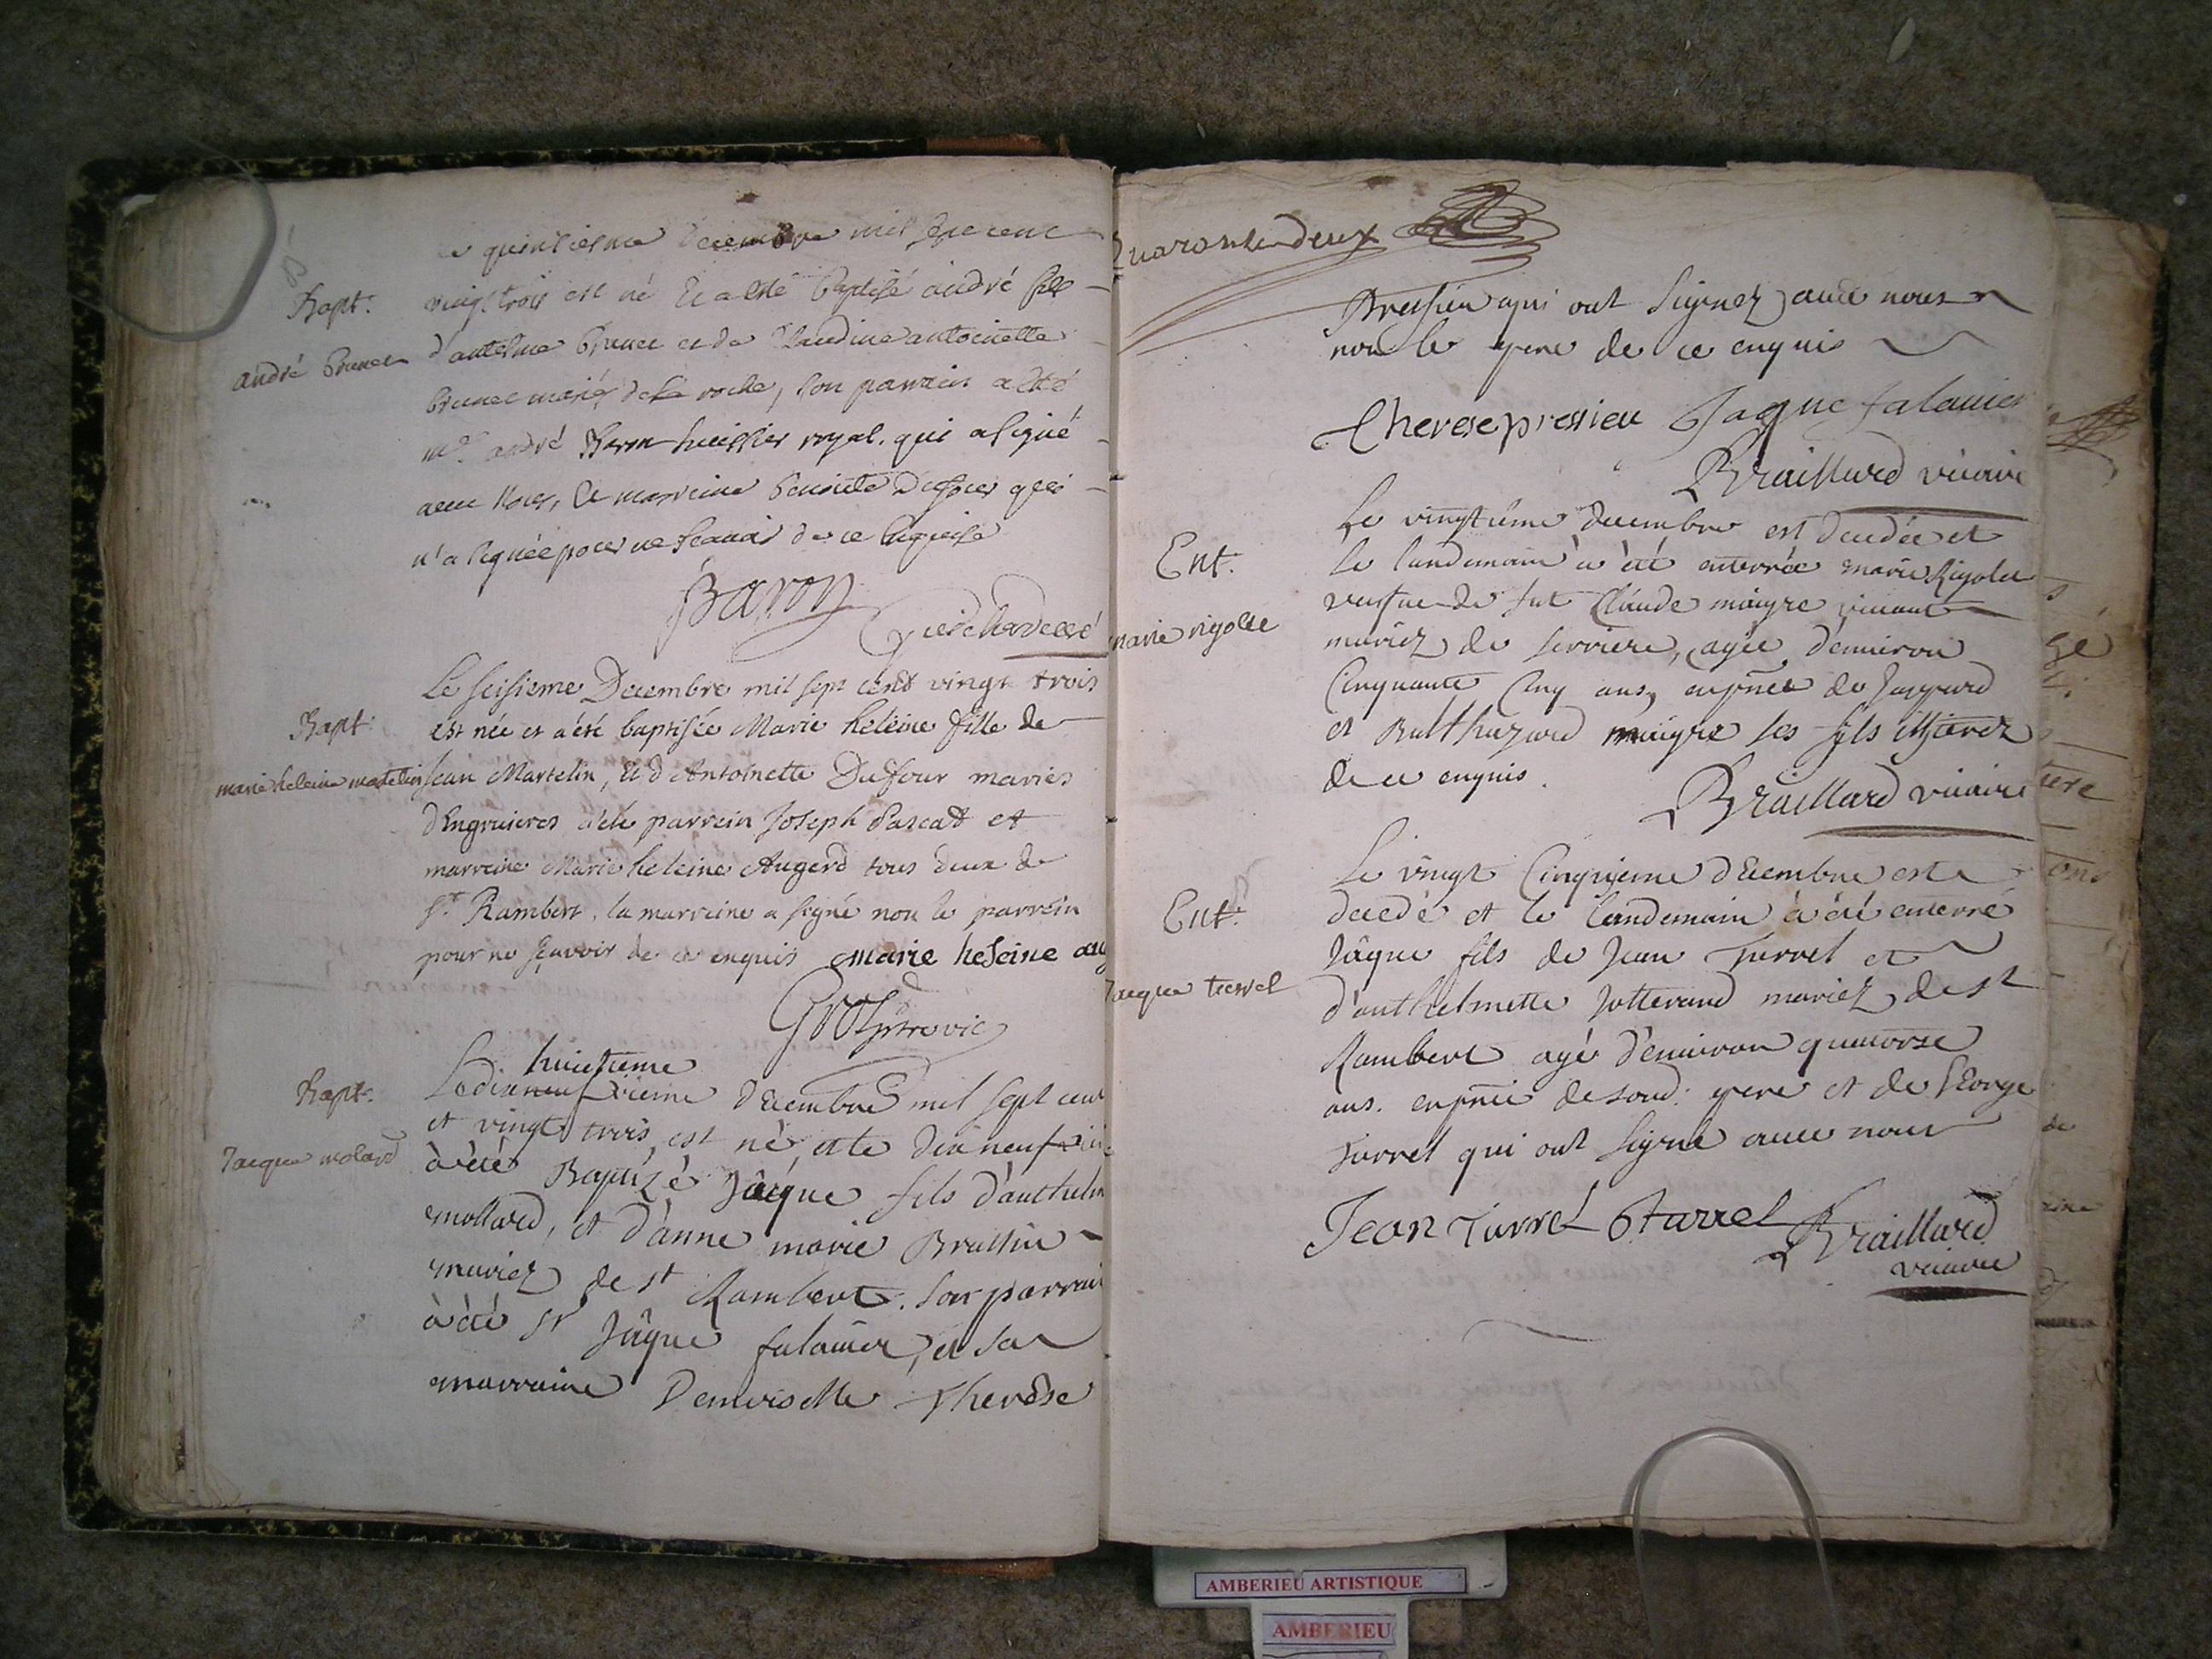 quinsiesme decembre mil sept cent
Bapt. vingt trois est né Et a esté baptisé andré fils
andré brunet d'antelme brunet et de Claudine antoinette
brunet mariés de la roche, son parrain a esté
mr andré Baron huissier royal. qui a signé
avec Nous, la marreine benoite qui
n'a signée pour ne scavoir de ce enquise
Baron
Le seisieme Decembre mil sept cent vingt trois
Bapt. est née et a été baptisée Marie heleine fille de
marie heleine martelin Jean Martelin, et d'Antoinette Dufour mariés
d'Engruieres a été parrein Joseph Pascat et
marreine Marie heleine Augerd tous deux de
St. Rambert. la marreine a signé non le parrein
pour ne sçavoir de ce enquis marie heleine aug
huictieme
Bapt. Le dixneufvieme decembre mil sept cent
et vingt trois est né, et le dixneuf
Jacque molard a été Baptizé Jâque fils d'anthelm
mollard, et d'anne marie Brussin
mariez de st Rambert. son parrain
à été sr Jâque falavier, et sa
marraine Demoiselle Therèse
Quarante deux
Pressieu qui ont signez avec nous
non le pere de ce enquis
Therese pressieu Jaque falavier
Braillard vicaire
Le vingtième decembre est decedée et
Ent. le landemain à été enterrée marie Rigolet
marie rigolet veufue de fut Claude maigre vivant
mariez de serriere, agée d'environ
Cinquante Cinq ans, en pñce de Gaspard
et Balthazard maigre ses fils illiterez
de ce enquis.
Braillard vicaire
Le vingt Cinqyieme decembre est
Ent. decedé et le landemain à été enterré
Jâque fils de Jean Turrel et
Jacque turrel d'anthelmette Jotterand mariez de st
Rambert agé d'environ quatorze
ans. en pñce de sond: pere et de George
Turrel qui ont signé avec nous
Jean Turrel G turrel Braillard
vicaire
AMBERIEU ARTISTIQUE
AMBERIEU